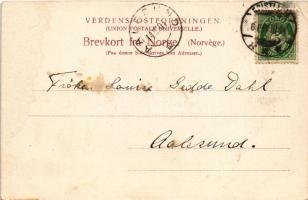 VERDENSPOSTFORENINGEN.
(UNION POSTALE UNIVERSELLE.)
Brevkort fra Norge. (Norvège.)
(Paa denne Side skrives kun Adressen.)
Frøken Louise Gedde Dahl
Aalesund.